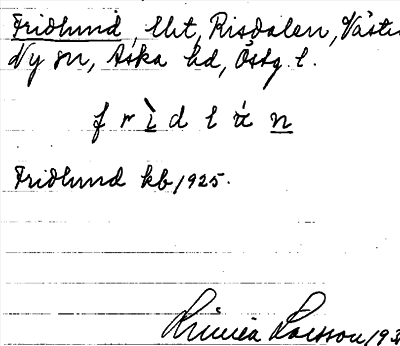 Fridlund, lht, Risdalen, Västra
Ny sn, Aska hd, Östg. l.
f r ì d l ù n
Fridlund kb 1925.
Linnea Larsson 193